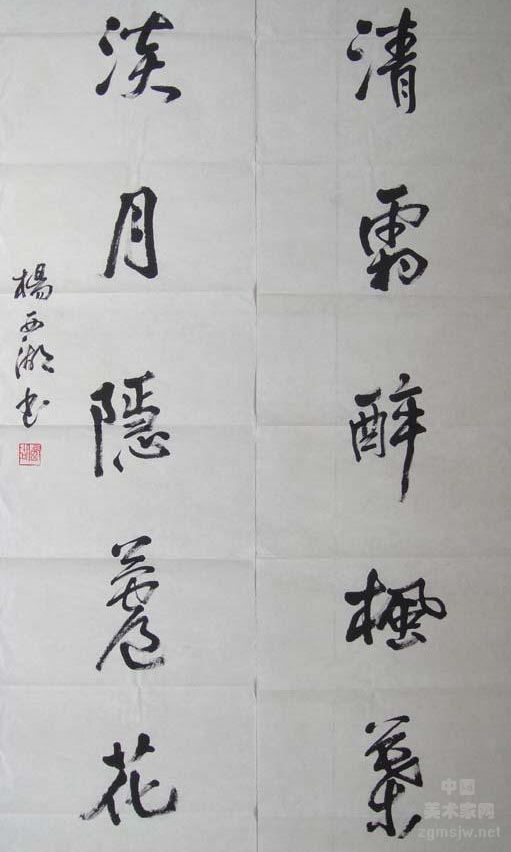 清霜醉楓葉
淡月隱蘆花
楊西湖书
中国
美术家网
zgmsjw.net